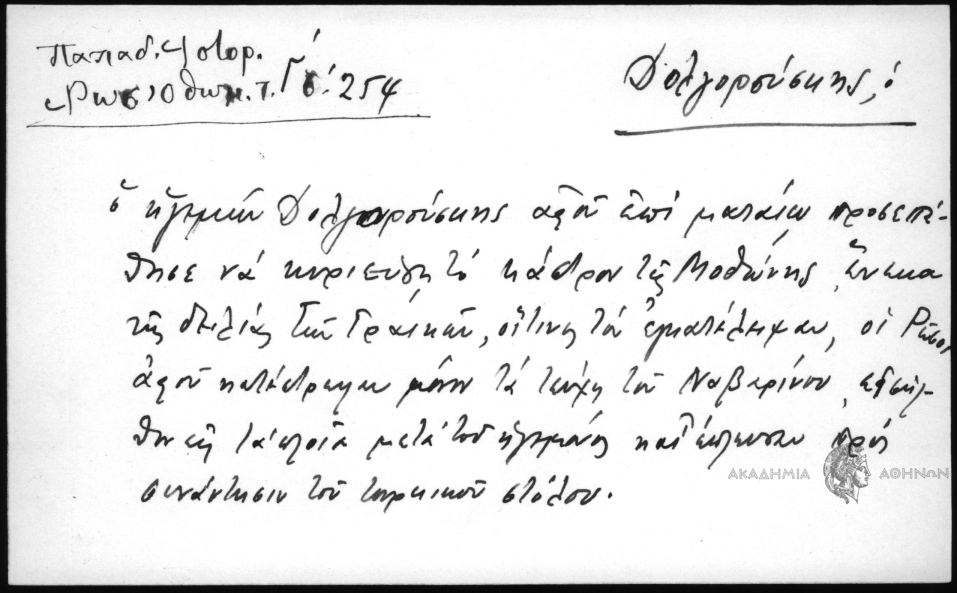 Παπαδ. Ἱστορ.
Ρωσ. Ὀθωμ. τ. Γ΄ σ. 254
Δολγορούσκης, ὁ
ὁ ἡγεμών Δολγορούσκης ἀφοῦ ἐπί ματαίῳ προσεπά-
θησε νά κυριεύσῃ τό κάστρον τῆς Μοθώνης, ἕνεκα
τῆς δειλίας τῶν Γραικῶν, οἵτινες τόν ἐγκατέλειψαν, οἱ Ρῶσοι
ἀφοῦ κατέστρεψαν μόνον τά τείχη τοῦ Ναβαρίνου,
εἰς τά πλοῖα μετά τοῦ ἡγεμόνος καί ἔπλευσαν πρός
συνάντησιν τοῦ τουρκικοῦ στόλου.
ΑΚΑΔΗΜΙΑ ΑΘΗΝΩΝ